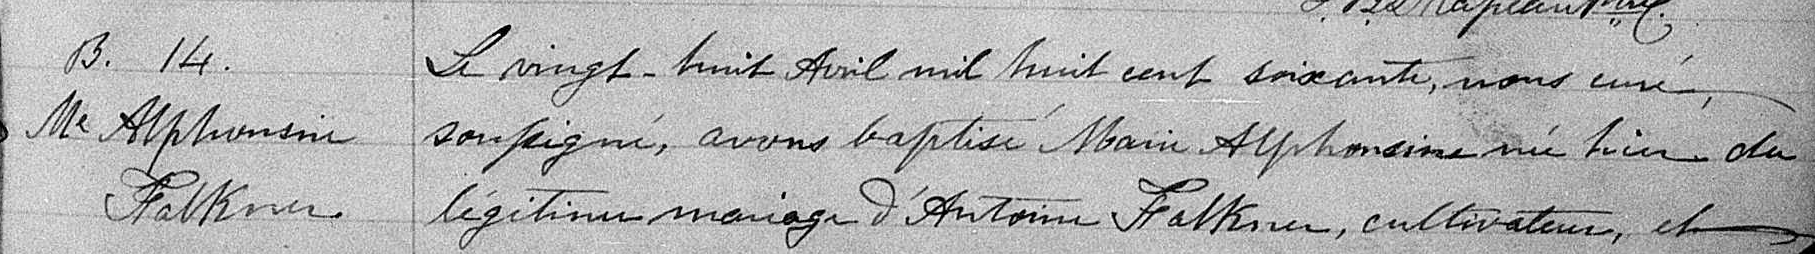 B. 14.
Me Alphonsine
Falkner
Le vingt-huit Avril mil huit cent soixante, nous curé,
soussigné, avons baptisé Marie Alphonsine née hier du
légitime mariage d'Antoine Falkner, cultivateur, et